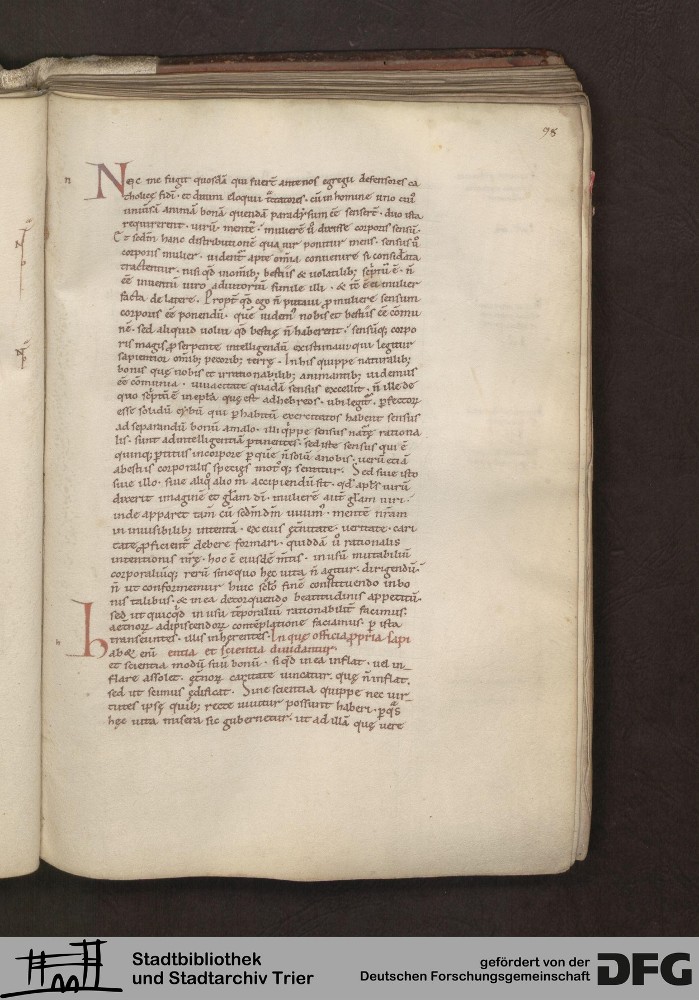 98
n
Nec me fugit quosdā qui fuer̄t ante nos egregii defensores ca
tholicę fidei · et divini eloquii tractatores · cū in homine uno cui᾽
universā animā bonā quendā paradysum eē senser̄t · duo ista
requirerent · virū · mentē · mulierē v̄ dixisse corporis sensū ·
Et sedm̄ hanc distributionē qua vir ponitur mens · sensus v̄
corporis mulier · vident̄ apte om̄ia convenire si considerata
tractentur · nisi qd̄ in om̄ib; bestiis & volatilib; scptū ē · n̄
eē inventū viro adiutoriū simile illi · & tc̄ ē ei mulier
facta de latere · Propt̄ qd̄ ego n̄ putavi p̄ muliere sensum
corporis eē ponendū · quē videm᾽ nobis et bestiis eē cōmu
nē · sed aliquid volui qd̄ bestię n̄ haberent · sensūq; corpo
ris magis p serpente intelligendū existimavi qui legitur
sapientior om̄ib; pecorib; terrę · In his quippe naturalib;
bonis quę nobis et irrationabilib; animantib; videmus
eē cōmunia · vivacitate quadā sensus excellit · n̄ ille de
quo scptū ē in epl̄a quę est ad hebreos · ubi legit̄ · pfectoꝝ
esse solidū cybū qui p habitū exercitatos habent sensus
ad separandū bonū a malo · illi q̄ppe sensus natę rationa
lis · sunt ad intelligentiā ptinentes · sed iste sensus qui ē
quinq; ptitus in corpore p quē n̄ solū a nobis · verū etiā
a bestiis corporalis species motq; sentitur · Sed sive isto
sive illo · sive aliq̄ alio m̄ accipiendū sit · qd̄ apls̄ virū
dixerit imaginē et gl̄am dī · mulierē aut̄ gl̄am viri ·
inde apparet tam̄ cū sedm̄ dm̄ vivim᾽ · mentē nr̄am
in invisibilib; intentā · ex eius ęt̄nitate · veritate · cari
tate pficient̄ debere formari · quiddā v̄ rationalis
intentionis nr̄ę · hoc ē eiusdē m̄tis · in usū mutabiliū
corporaliūq; rerū sine quo hęc vita n̄ agitur · dirigendū ·
n̄ ut conformemur huic sclō finē constituendo in bo
nis talibus · & in ea detorquendo beatitudinis appetitū ·
sed ut quicq̄d in usu tēporaliū rationabilit̄ facimus ·
aet̄noꝝ adipiscendoꝝ contēplatione faciamus · p ista
transeuntes · illis inherentes · In quę officia ppria sapi
h
Habet enī entia et scientia dividantur ·
et scientia modū suū bonū · si qd̄ in ea inflat · vel in_
flare assolet · ęt̄noꝝ caritate vincatur · quę n̄ inflat ·
sed ut scimus ędificat · Sine scientia quippe nec vir_
tutes ipsę quib; recte vivitur possunt haberi · p q̄s
hęc vita misera sic gubernetur · ut ad illā quę vere
Stadtbibliothek
und Stadtarchiv Trier
gefördert von der
Deutschen Forschungsgemeinschaft
DFG